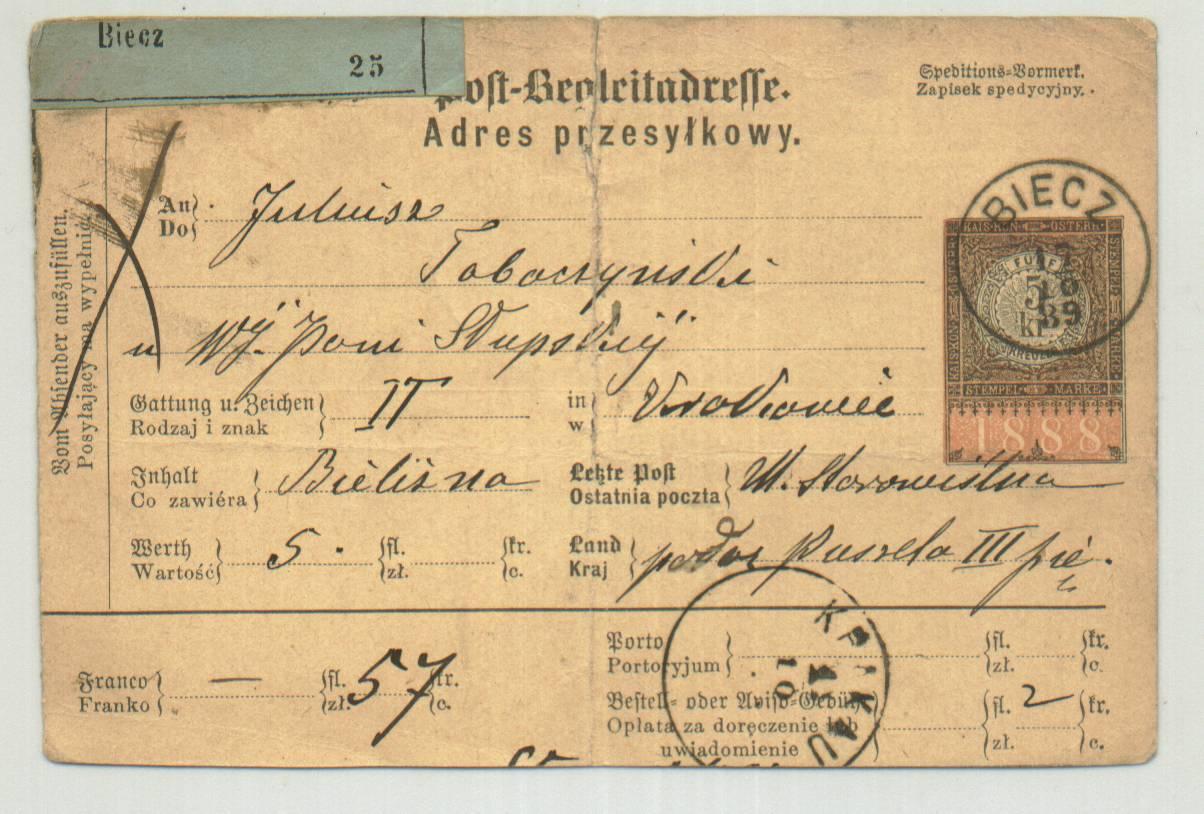 Biecz
25
Post-Begleitadresse.
Adres przesyłkowy.
Speditions-Vormerk.
Zapisek spedycyjny.
Vom Absender auszufüllen.
Posyłający ma wypełnić.
An
Do
Juliusz
Toboczyński
u WJ. Pani Słupskiéj
BIECZ
10
89
KAIS. KÖN. ÖSTERR.
FÜNF
5
kr
KREUZER
STEMPEL MARKE
1888
Gattung u. Zeichen
Rodzaj i znak
IT
in
w
Inhalt
Co zawiéra
Bielizna
Letzte Post
Ostatnia poczta
Ul. Starowiślna
Werth
Wartość
5 .
fl. kr.
zł. c.
Land
Kraj
III
KRAKAU
10
Franco
Franko
—
fl.
zł.
57
kr.
c.
Porto
Portoryjum
fl. kr.
zł. c.
Bestell- oder Aviso-Gebühr
Opłata za doręczenie lub
uwiadomienie
fl. 2 kr.
zł. c.